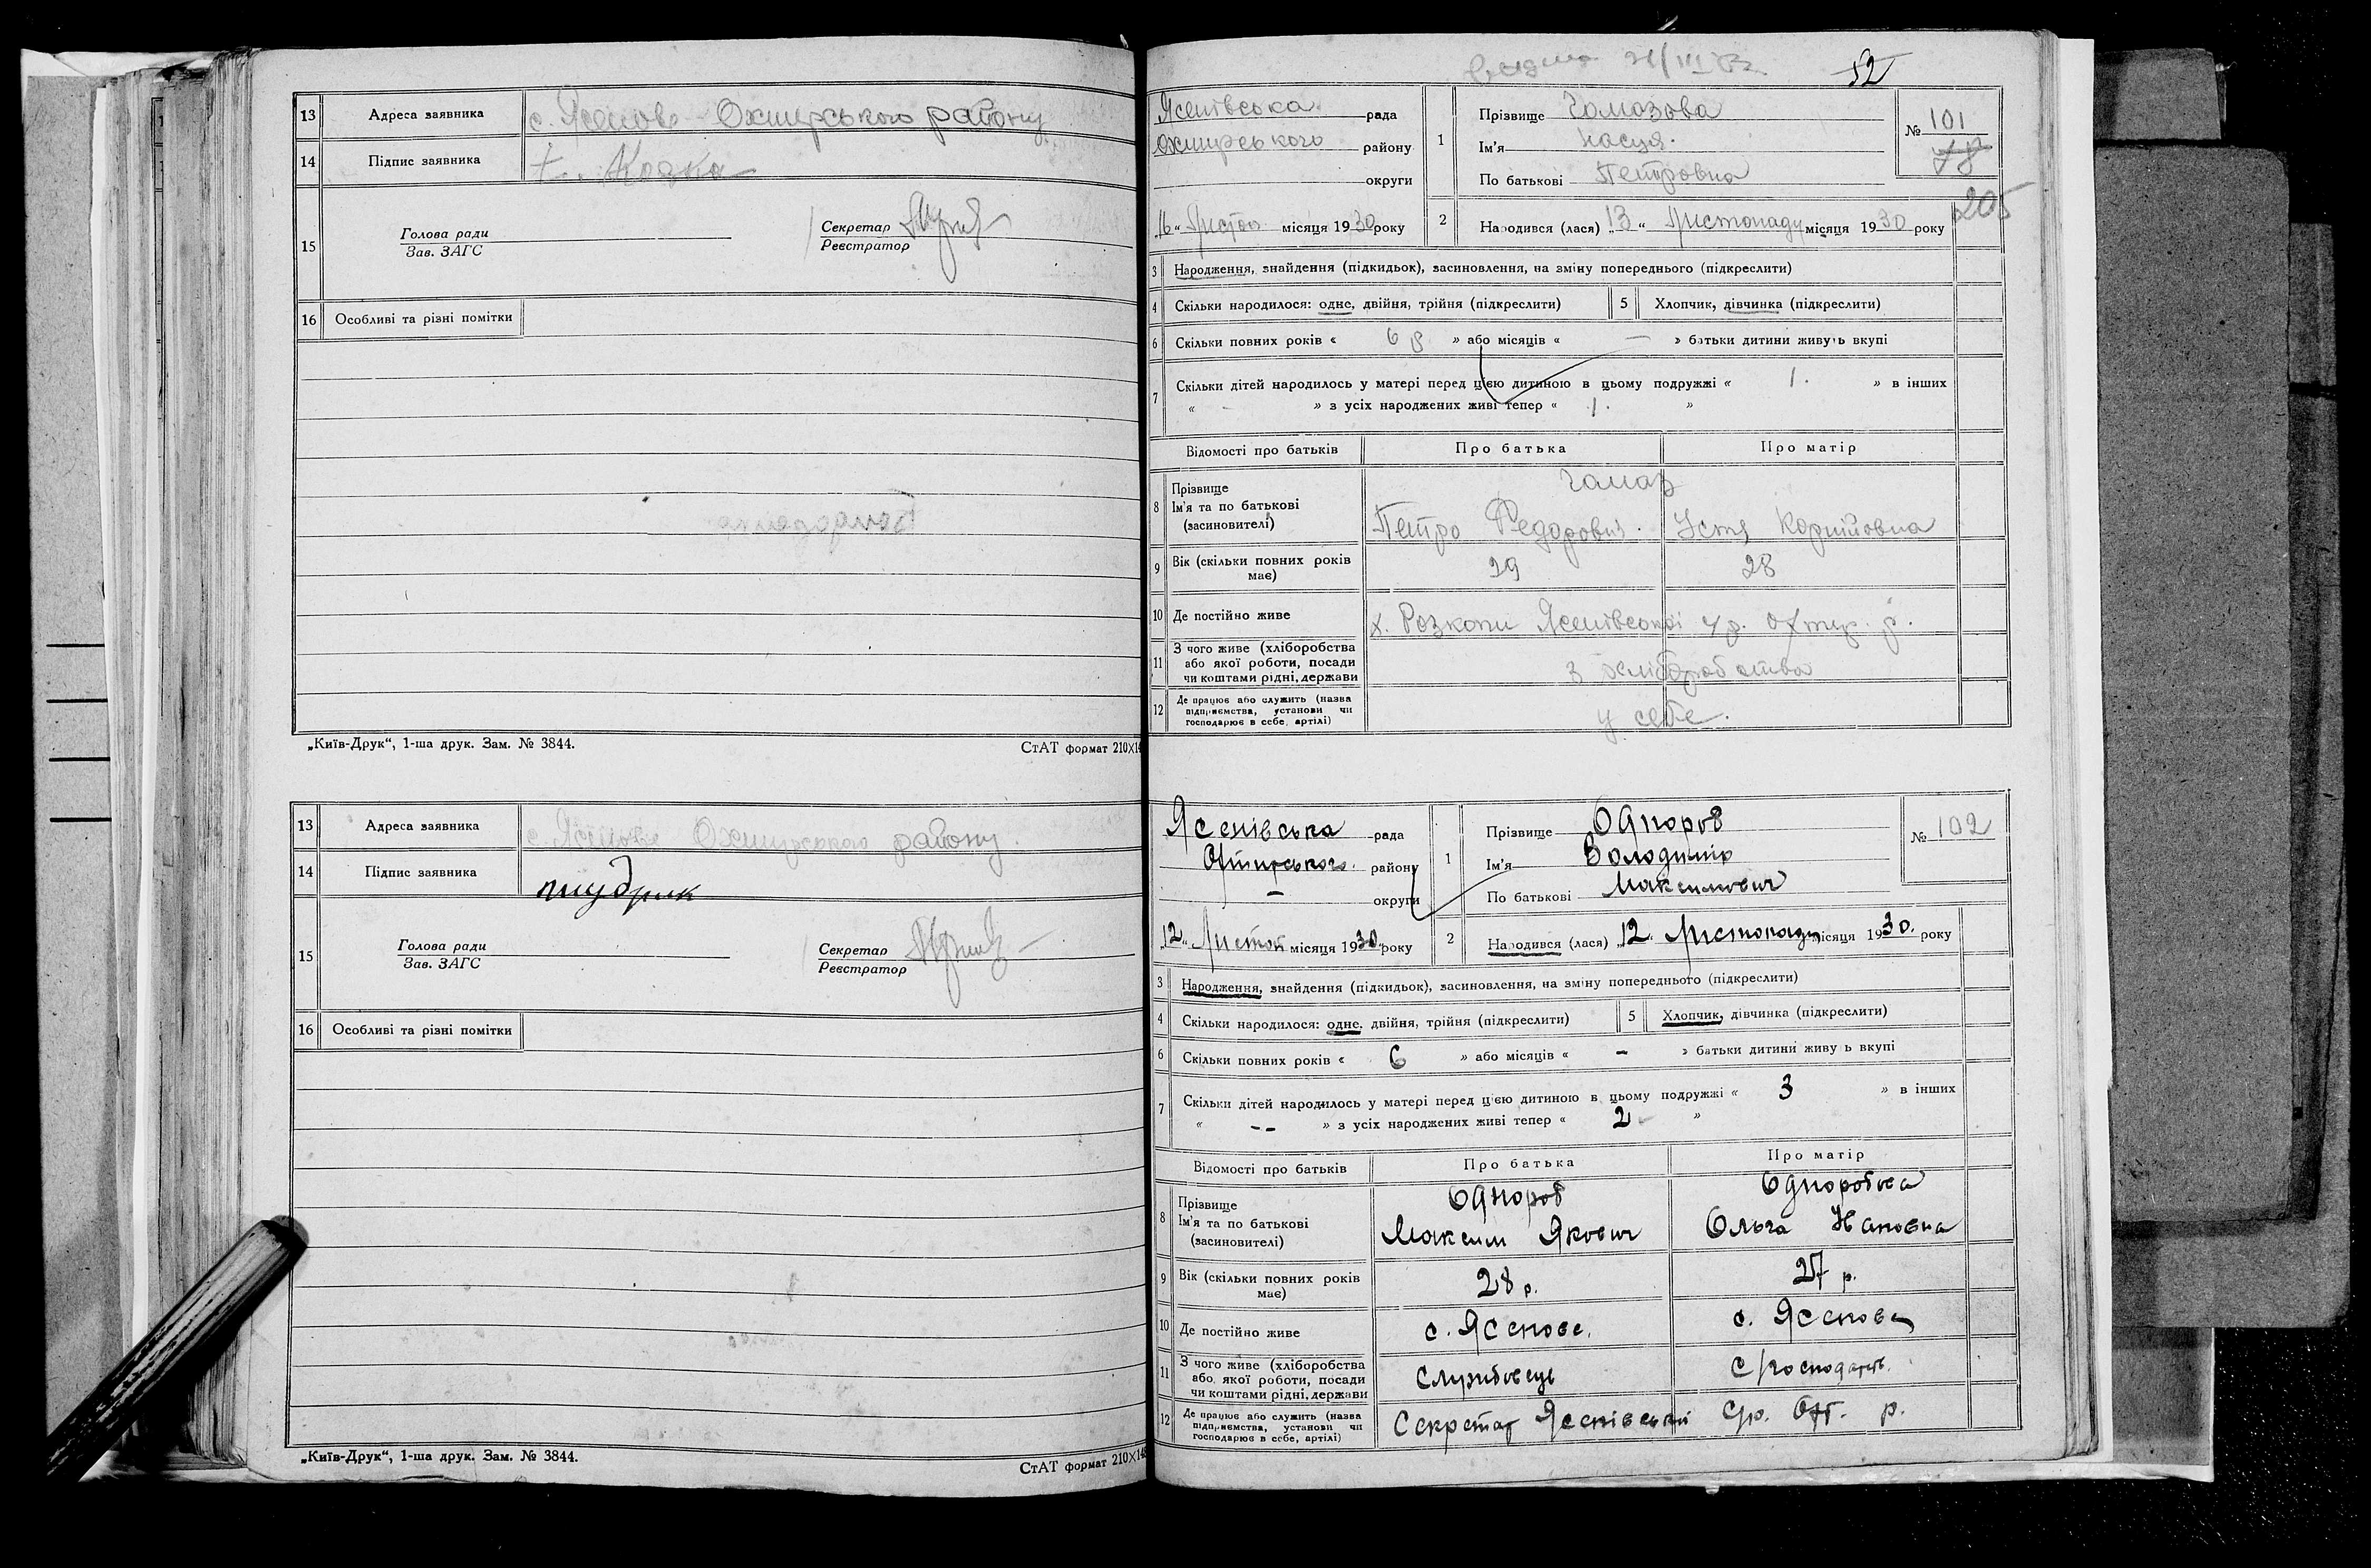 13 Адреса заявника с. Ясенове Охтирського району
14 Підпис заявника
15 Голова ради
Зав. ЗАГС
Секретар
Реєстратор
16 Особливі та різні помітки
„Київ-Друк“, 1-ша друк. Зам. № 3844.
СтАТ формат 210×14
13 Адреса заявника с. Ясенове Охтирського району.
14 Підпис заявника
15 Голова ради
Зав. ЗАГС
Секретар
Реєстратор
16 Особливі та різні помітки
„Київ-Друк“, 1-ша друк. Зам. № 3844.
СтАТ формат 210×148
52
Ясенівська рада
Охтирського району
округи
„16“ Листоп місяця 1930 року
1 Прізвище Гамазова
Ім'я Настя.
По батькові Петровна
№ 101
78
205
2 Народився (лася) „13“ Листопаду місяця 1930 року
3 Народження, знайдення (підкидьок), засиновлення, на зміну попереднього (підкреслити)
4 Скільки народилося: одне, двійня, трійня (підкреслити)
5 Хлопчик, дівчинка (підкреслити)
6 Скільки повних років « 6 р » або місяців « — » батьки дитини живуть вкупі
7 Скільки дітей народилось у матері перед цією дитиною в цьому подружжі « 1. » в інших
« - » з усіх народжених живі тепер « 1. »
Відомості про батьків Про батька Про матір
8 Прізвище
Ім'я та по батькові
(засиновителі)
Гамаз
Петро Федорович. Устя Корнійовна
9 Вік (скільки повних років має) 29 28
10 Де постійно живе х. Розкопи Ясенівської с/р. Охтир. р.
11 З чого живе (хліборобства
або якої роботи, посади
чи коштами рідні, держави
з хліборобства
12 Де працює або служить (назва
підприємства, установи чи
господарює в себе, артілі)
у себе.
Ясенівська рада
Охтирського району
— округи
„12“ Листоп місяця 1930 року
1 Прізвище Однороб
Ім'я Володимір
По батькові Максимович
№ 102
2 Народився (лася) „12“ Листопаду місяця 1930. року
3 Народження, знайдення (підкидьок), засиновлення, на зміну попереднього (підкреслити)
4 Скільки народилося: одне, двійня, трійня (підкреслити)
5 Хлопчик, дівчинка (підкреслити)
6 Скільки повних років « 6 » або місяців « - » батьки дитини живу ь вкупі
7 Скільки дітей народилось у матері перед цією дитиною в цьому подружжі « 3 » в інших
« -- » з усіх народжених живі тепер « 2 - »
Відомості про батьків Про батька Про матір
8 Прізвище
Ім'я та по батькові
(засиновителі)
Однороб Одноробова
Максим Якович Ольга Йвановна
9 Вік (скільки повних років має) 28 р. 27 р.
10 Де постійно живе с. Ясенове. с. Ясенове
11 З чого живе (хліборобства
або якої роботи, посади
чи коштами рідні, держави
Служебовець С/господарств.
12 Де працює або служить (назва
підприємства, установи чи
господарює в себе, артілі)
Секретар Ясенівський С/р. Охт. р.